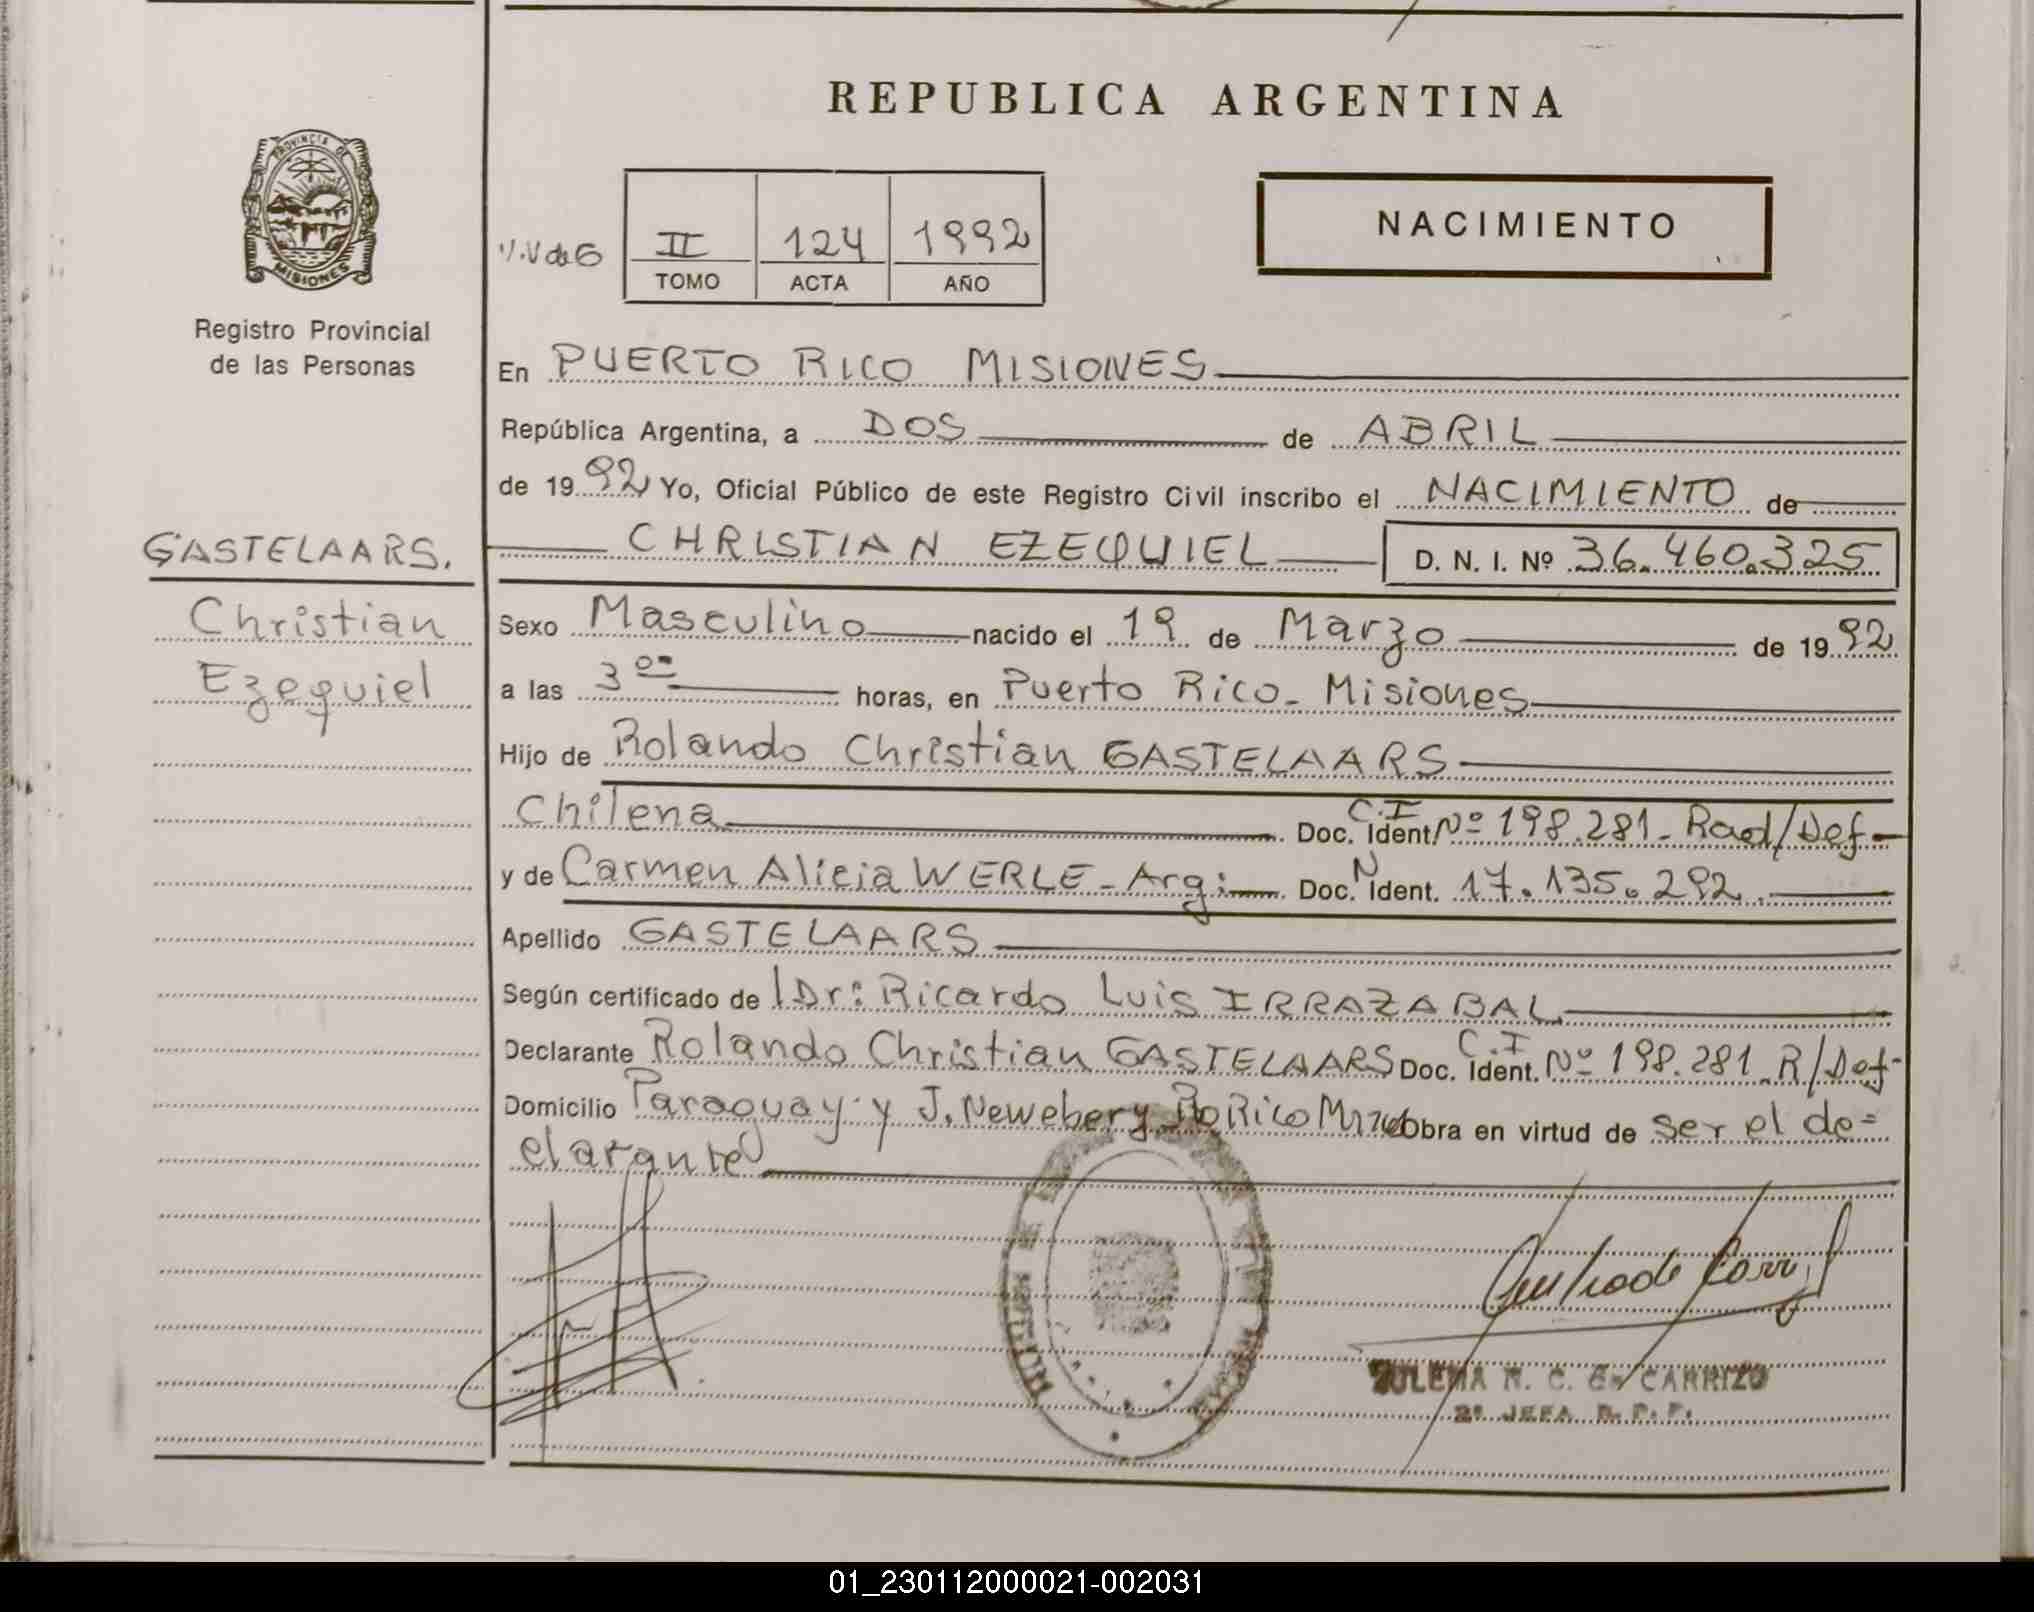 REPUBLICA ARGENTINA
PROVINCIA DE
MISIONES
Registro Provincial
de las Personas
II 124 1992
TOMO ACTA AÑO
NACIMIENTO
En PUERTO RICO MISIONES
República Argentina, a DOS de ABRIL
de 1992 Yo, Oficial Público de este Registro Civil inscribo el NACIMIENTO de
GASTELAARS.
CHRISTIAN EZEQUIEL D. N. I. Nº 36.460.325
Christian
Ezequiel
Sexo Masculino nacido el 19 de Marzo de 1992
a las 3 oo horas, en Puerto Rico - Misiones
Hijo de Rolando Christian GASTELAARS
Chilena Doc. Ident. C.I Nº 198.281 - Rad/Def -
y de Carmen Alicia WERLE - Arg: Doc. N Ident. 17.135.292.
Apellido GASTELAARS
Según certificado de Dr: Ricardo Luis IRRAZABAL
Declarante Rolando Christian GASTELAARS Doc. Ident. C.I Nº 198.281. R/Def-
Domicilio Paraguay y J. Newebery Pto Rico Mnes Obra en virtud de ser el de=
clarante
ZULEMA C. CARRIZO
2º JEFA
01_230112000021-002031